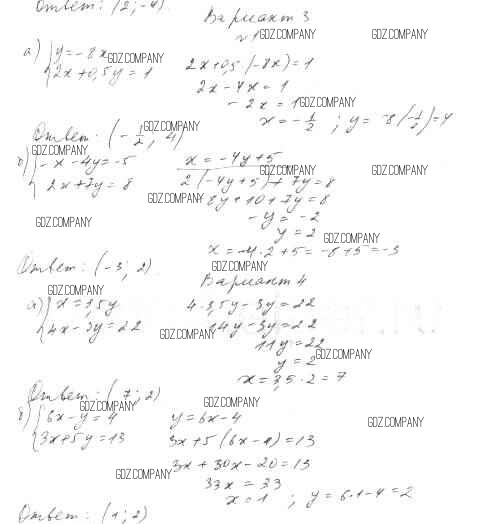 Ответ: (2; -4).
Вариант 3
№1 GDZ.COMPANY GDZ.COMPANY
а) { y = -8x GDZ.COMPANY 2x + 0,5·(-8x) = 1
2x + 0,5y = 1 2x - 4x = 1
-2x = 1 GDZ.COMPANY
x = -1/2 ; y = -8(-1/2) = 4
Ответ: (-1/2; 4) GDZ.COMPANY
GDZ.COMPANY
б) { -x - 4y = -5 x = -4y + 5
GDZ.COMPANY GDZ.COMPANY
2x + 7y = 8 2(-4y + 5) + 7y = 8
GDZ.COMPANY -8y + 10 + 7y = 8
GDZ.COMPANY -y = -2
y = 2 GDZ.COMPANY
x = -4·2 + 5 = -8 + 5 = -3
Ответ: (-3; 2). GDZ.COMPANY
Вариант 4
GDZ.COMPANY
а) { x = 3,5y 4·3,5y - 3y = 22
4x - 3y = 22 GDZ.COMPANY 14y - 3y = 22
11y = 22
y = 2 GDZ.COMPANY
x = 3,5·2 = 7
Ответ: (7; 2)
GDZ.COMPANY GDZ.COMPANY
б) { 6x - y = 4 y = 6x - 4 GDZ.COMPANY
3x + 5y = 13 3x + 5(6x - 4) = 13
GDZ.COMPANY 3x + 30x - 20 = 13
33x = 33
x = 1 ; y = 6·1 - 4 = 2
Ответ: (1; 2)